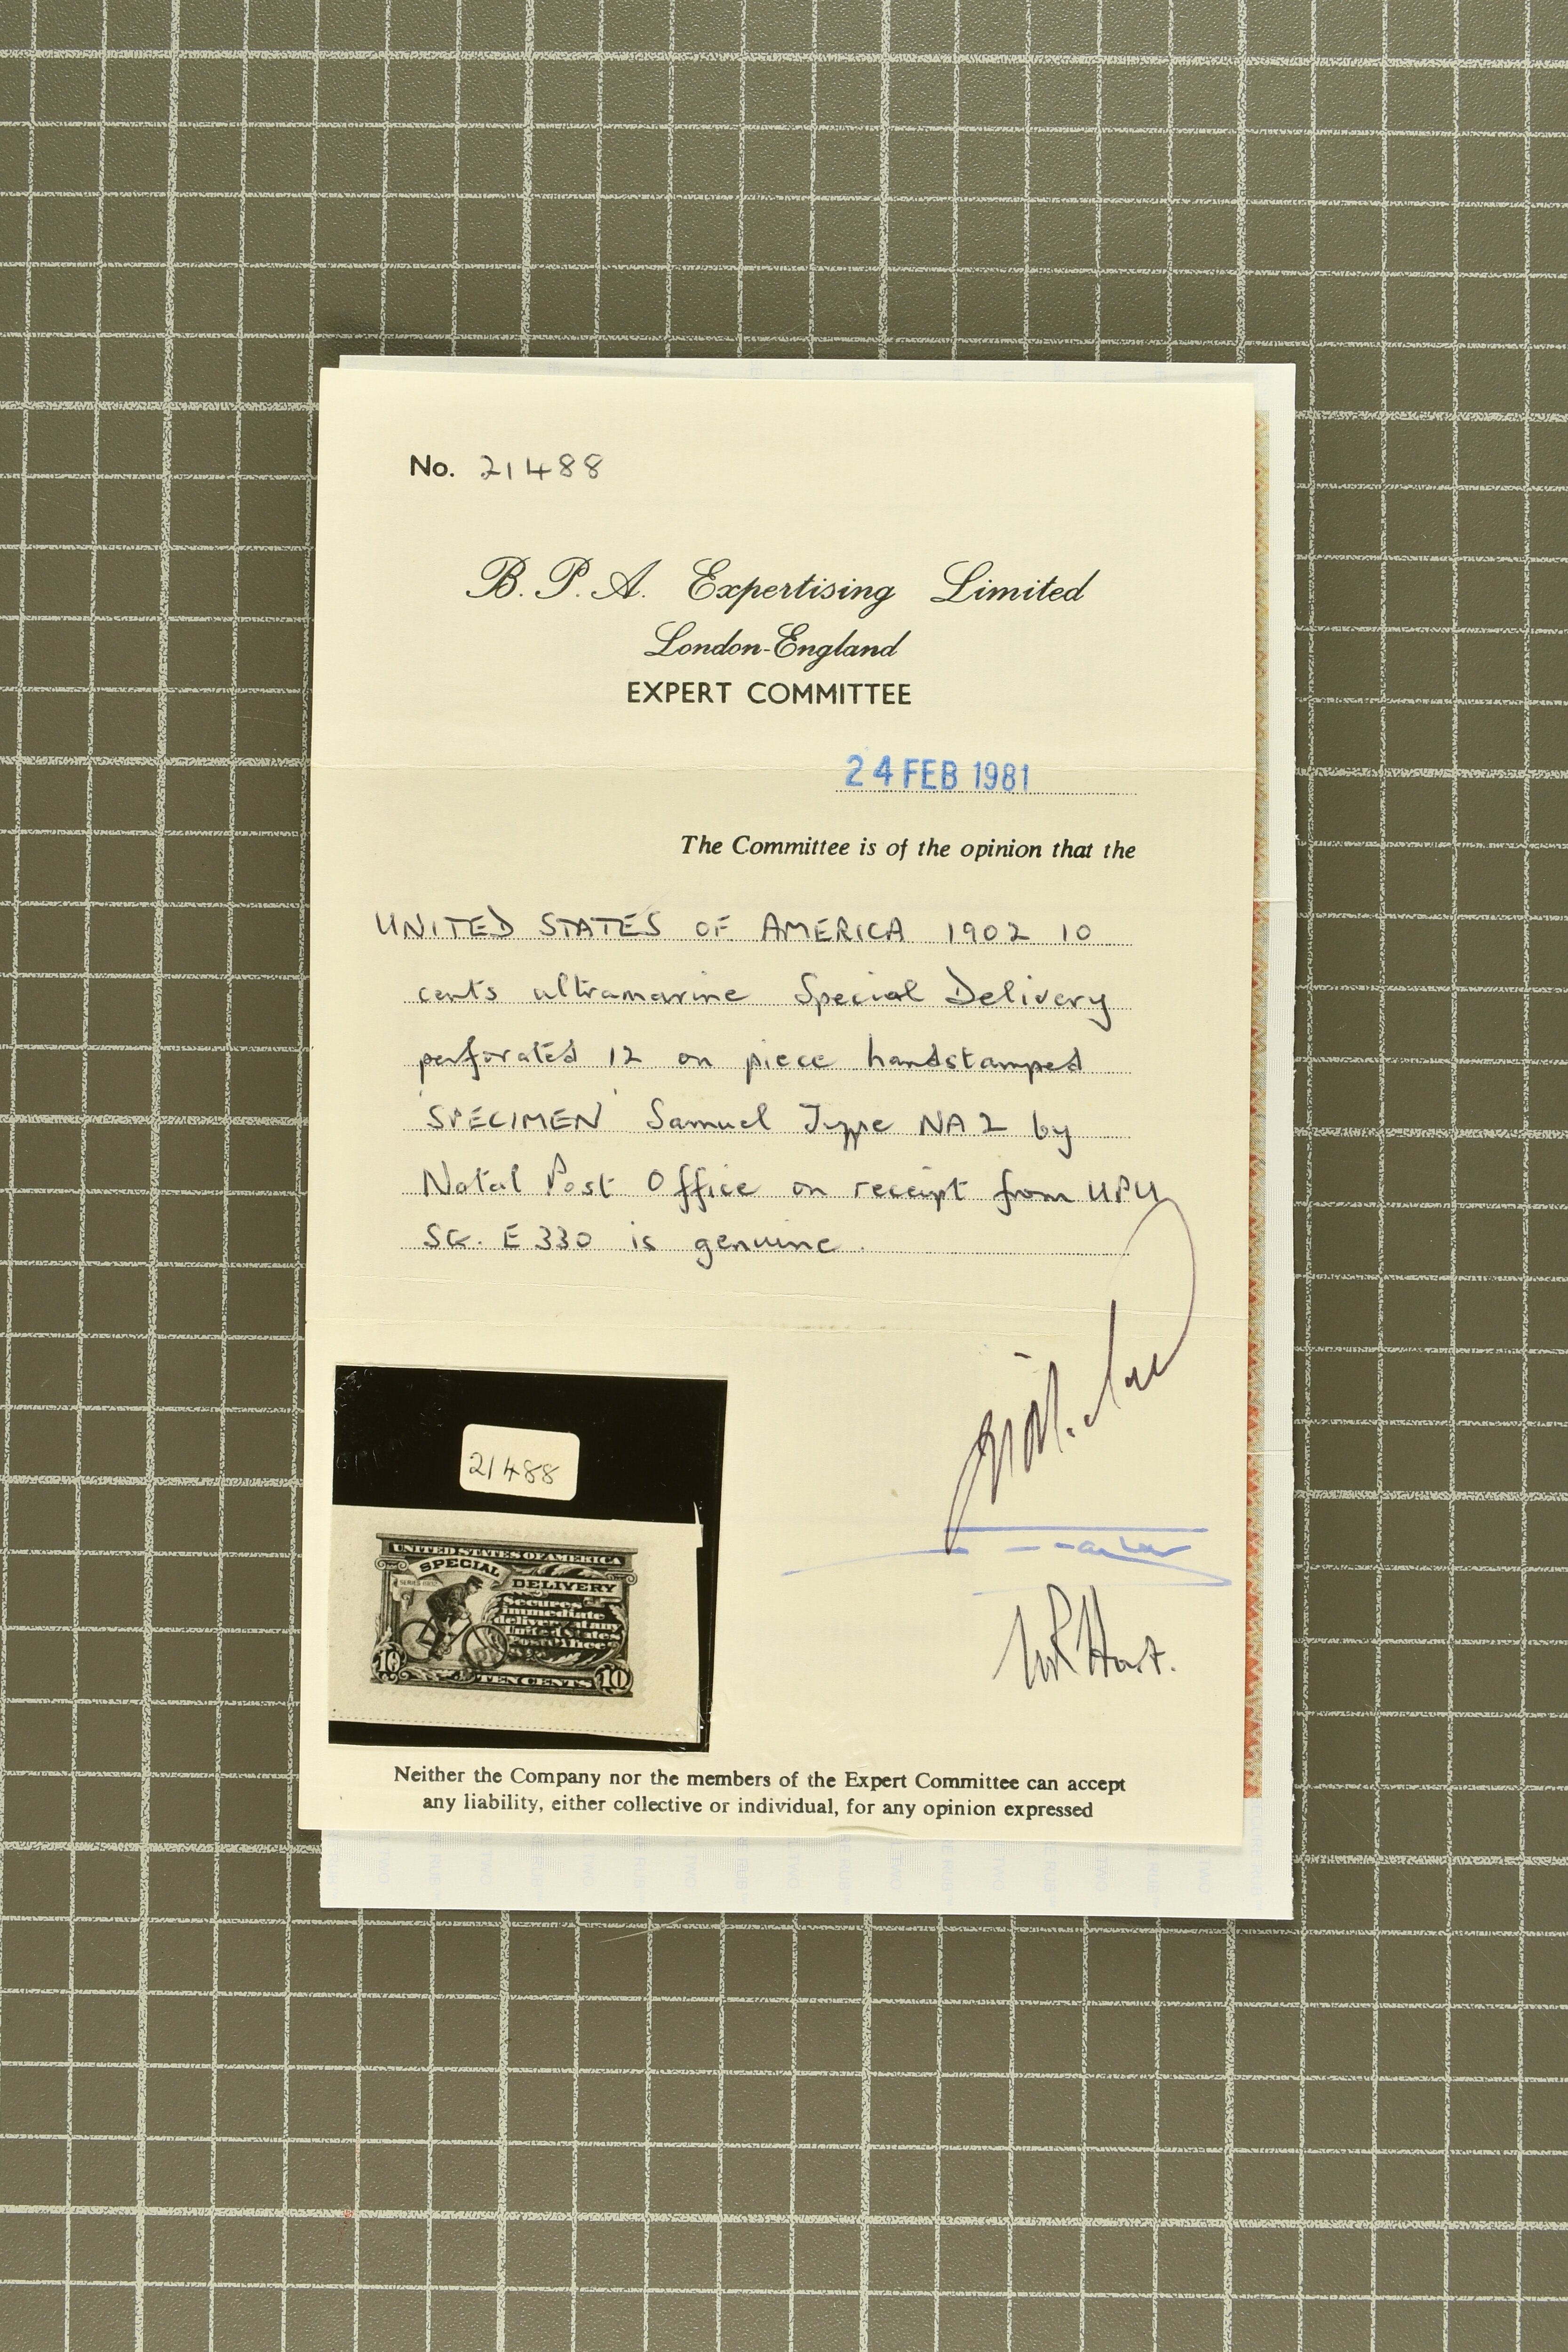 No. 21488
B. P. A. Expertising Limited
London-England
EXPERT COMMITTEE
24 FEB 1981
The Committee is of the opinion that the
UNITED STATES OF AMERICA 1902 10
cents ultramarine Special Delivery
perforated 12 on piece handstamped
'SPECIMEN' Samuel Type NA2 by
Natal Post Office on receipt from UPU
SG. E330 is genuine.
21488
UNITED STATES OF AMERICA
SPECIAL
DELIVERY
SERIES 1902
Secures
immediate
delivery at any
United States
Post Office
10 TEN CENTS 10
Hart.
Neither the Company nor the members of the Expert Committee can accept
any liability, either collective or individual, for any opinion expressed